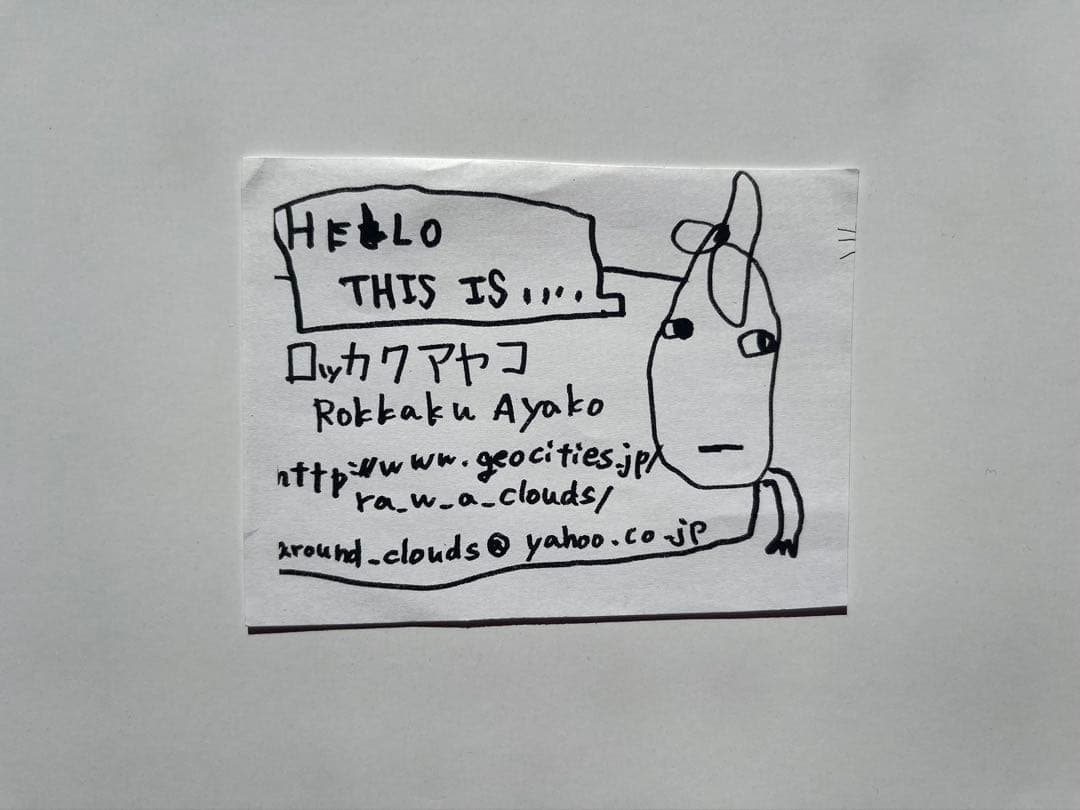 HELLO
THIS IS .....
ロッカクアヤコ
Rokkaku Ayako
http://www.geocities.jp/
ra_w_a_clouds/
around_clouds@yahoo.co.jp